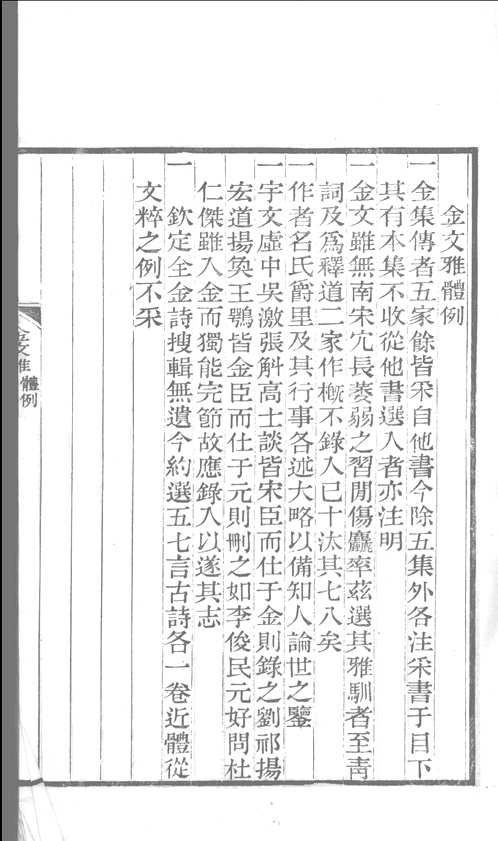 金文雅體例
一金集傳者五家餘皆采自他書今除五集外各注采書于目下
其有本集不收從他書選入者亦注明
一金文雖無南宋冗長萎弱之習閒傷麤率兹選其雅馴者至靑
詞及爲釋道二家作槪不錄入已十汰其七八矣
一作者名氏爵里及其行事各述大略以備知人論世之鑒
一宇文虛中吳激張斛高士談皆宋臣而仕于金則錄之劉祁揚
宏道揚奐王鶚皆金臣而仕于元則刪之如李俊民元好問杜
仁傑雖入金而獨能完節故應錄入以遂其志
一欽定全金詩搜輯無遺今約選五七言古詩各一卷近體從
文粹之例不采
金文雅 體例